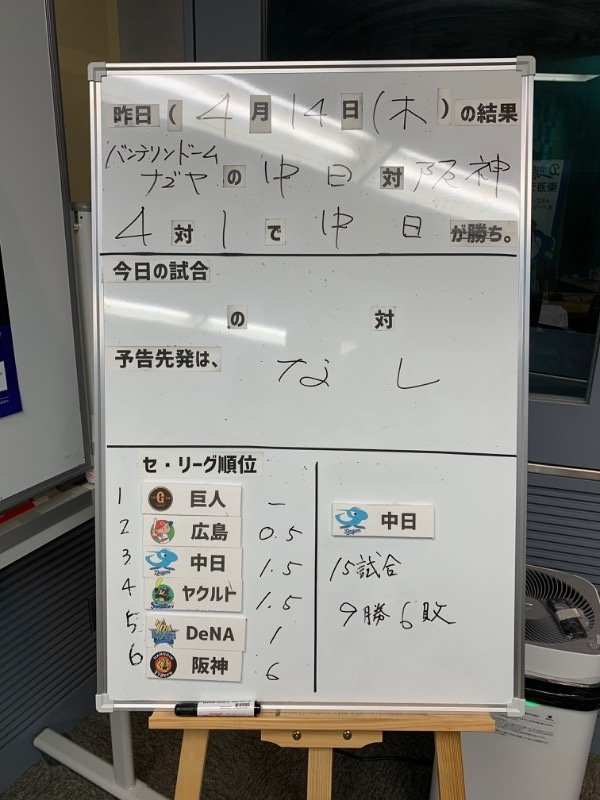 昨日(4月14日(木)の結果
バンテリンドーム
ナゴヤの中日対阪神
4対1で中日が勝ち。
今日の試合
の 対
予告先発は、なし
セ・リーグ順位
1 巨人 ー
2 広島 0.5
3 中日 1.5
4 ヤクルト 1.5
5 DeNA 1
6 阪神 6
中日
15試合
9勝6敗